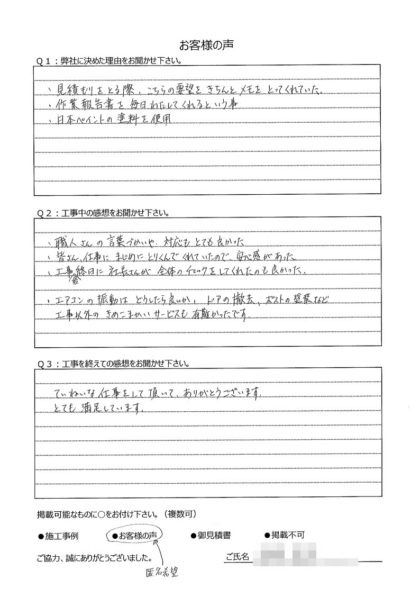 お客様の声
Q1：弊社に決めた理由をお聞かせ下さい。
・見積もりをとる際、こちらの要望をきちんとメモをとってくれていた。
・作業報告書を毎日わたしてくれるという事
・日本ペイントの塗料を使用
Q2：工事中の感想をお聞かせ下さい。
・職人さんの言葉づかいや、対応もとても良かった
・皆さん、仕事にまじめにとりくんでくれていたので、安心感があった。
・工事終日に社長さんが全体のチェックをしてくれたのも良かった。
・エアコンの振動はどうしたら良いか、ドアの撤去、ポストの塗装など
工事以外のきめこまかいサービスも有難かったです
Q3：工事を終えての感想をお聞かせ下さい。
ていねいな仕事をして頂いて、ありがとうございます。
とても満足しています。
掲載可能なものに○をお付け下さい。（複数可）
●施工事例 ●お客様の声 ●御見積書 ●掲載不可
ご協力、誠にありがとうございました。 ご氏名
匿名希望